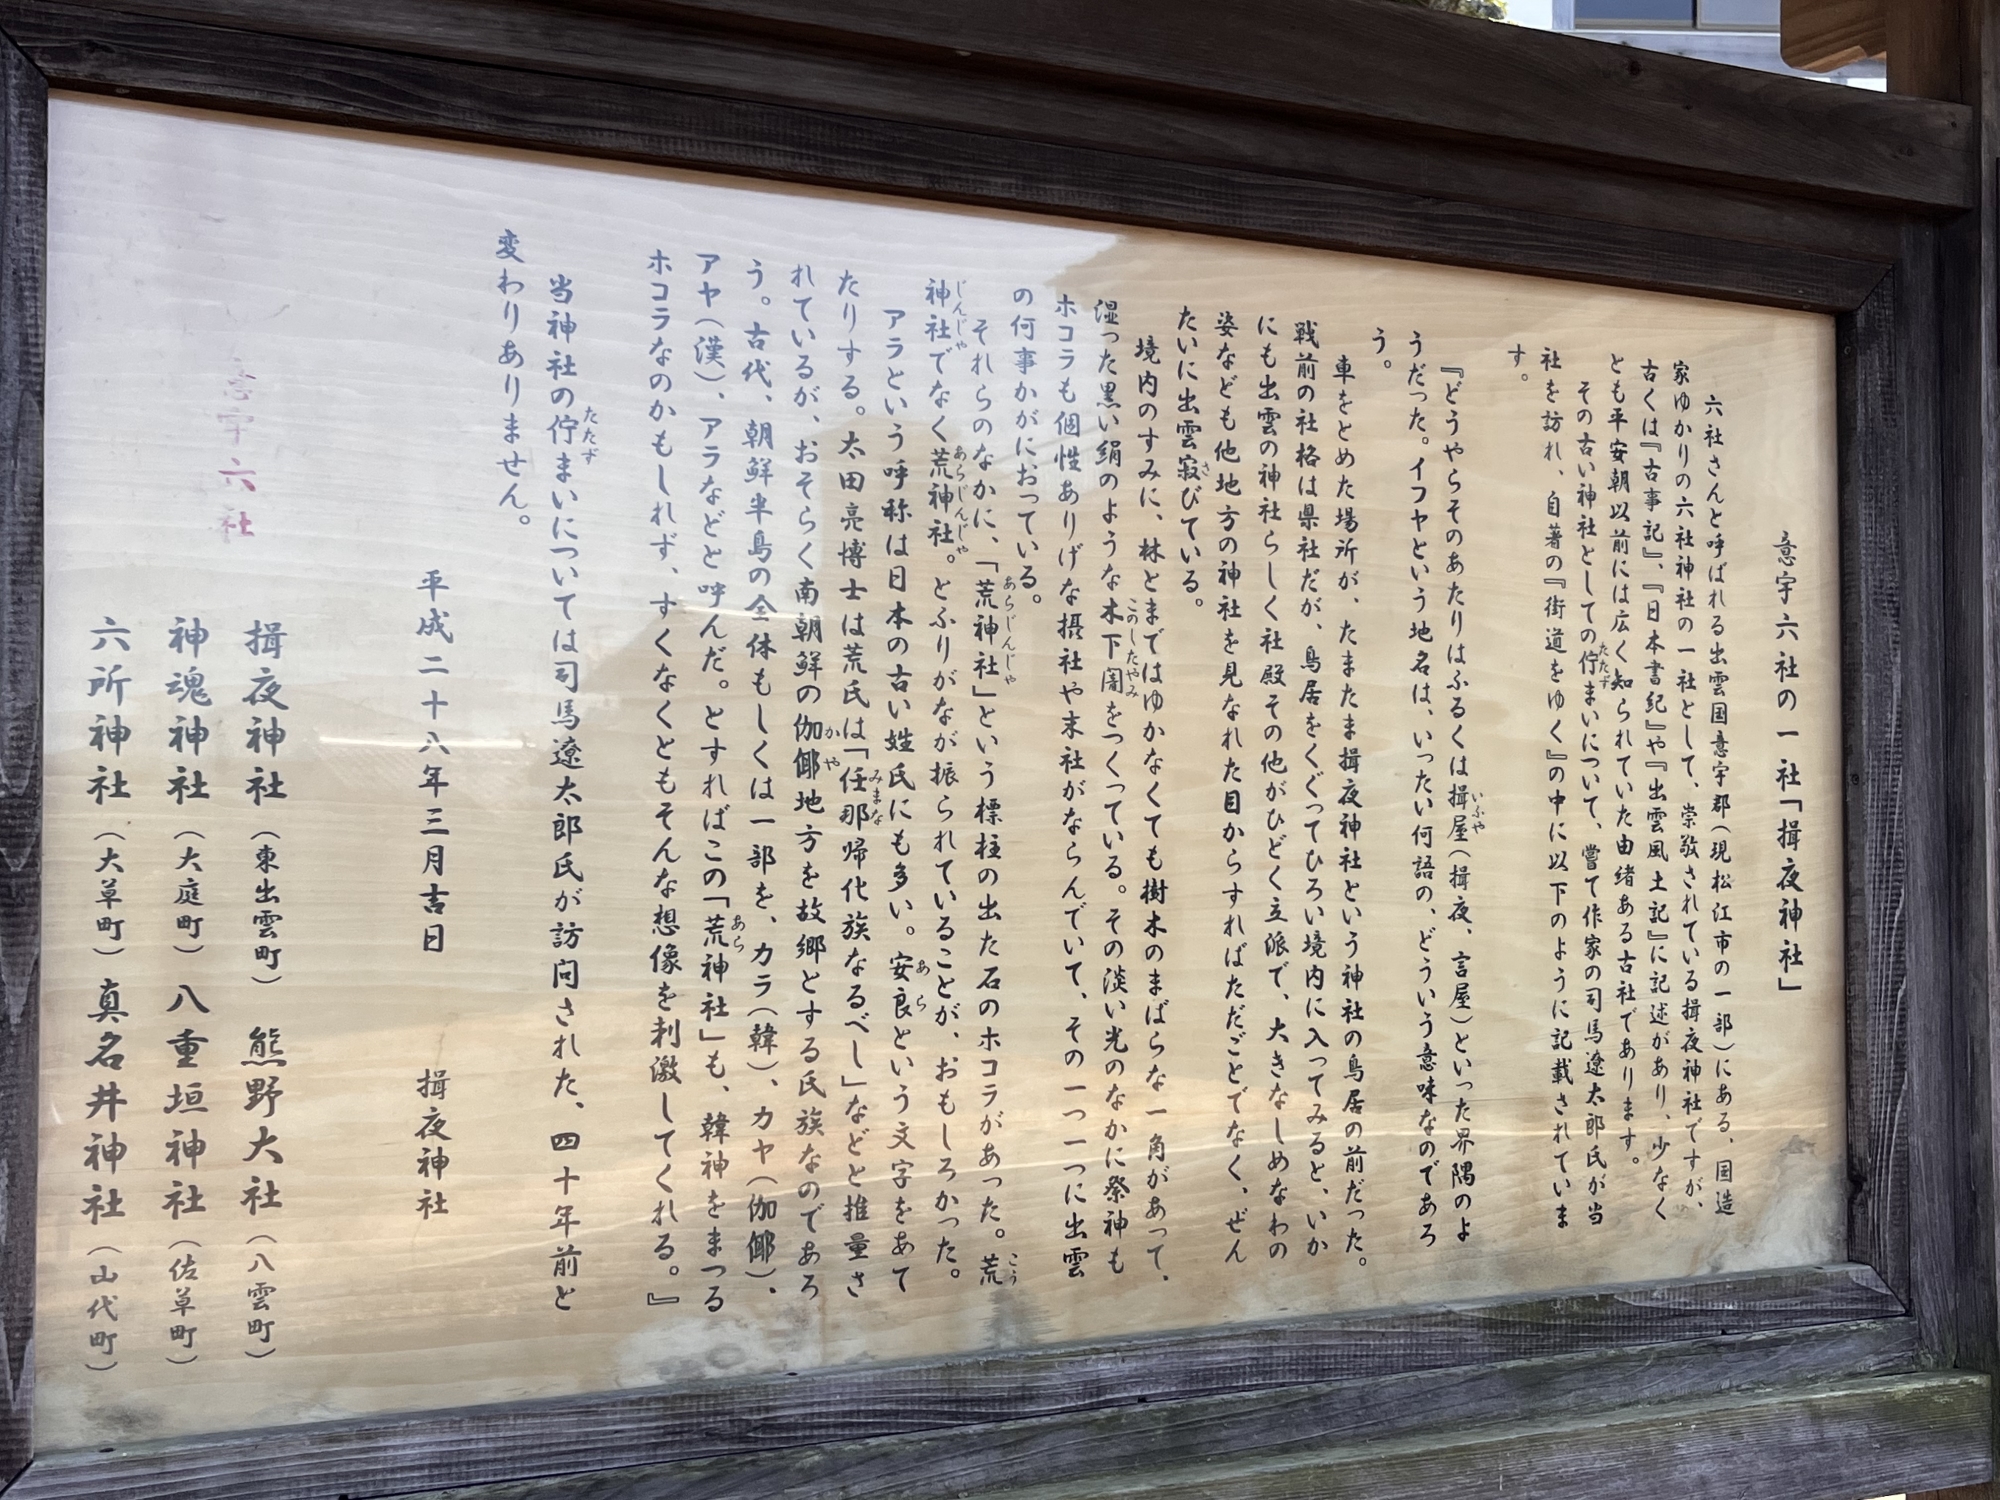 意宇六社の一社「揖夜神社」
六社さんと呼ばれる出雲国意宇郡（現松江市の一部）にある、国造
家ゆかりの六社神社の一社として、崇敬されている揖夜神社ですが、
古くは『古事記』、『日本書紀』や『出雲風土記』に記述があり、少なく
とも平安朝以前には広く知られていた由緒ある古社であります。
その古い神社としての佇まいについて、嘗て作家の司馬遼太郎氏が当
社を訪れ、自著の『街道をゆく』の中に以下のように記載されていま
す。
『どうやらそのあたりはふるくは揖屋（揖夜、言屋）といった界隈のよ
うだった。イフヤという地名は、いったい何語の、どういう意味なのであろ
う。
車をとめた場所が、たまたま揖夜神社という神社の鳥居の前だった。
戦前の社格は県社だが、鳥居をくぐってひろい境内に入ってみると、いか
にも出雲の神社らしく社殿その他がひどく立派で、大きなしめなわの
姿なども他地方の神社を見なれた目からすればただごとでなく、ぜん
たいに出雲寂びている。
境内のすみに、林とまではゆかなくても樹木のまばらな一角があって、
湿った黒い絹のような木下闇をつくっている。その淡い光のなかに祭神も
ホコラも個性ありげな摂社や末社がならんでいて、その一つ一つに出雲
の何事かがにおっている。
それらのなかに、「荒神社」という標柱の出た石のホコラがあった。荒
神社でなく荒神社。とふりがなが振られていることが、おもしろかった。
アラという呼称は日本の古い姓氏にも多い。安良という文字をあて
たりする。太田亮博士は荒氏は「任那帰化族なるべし」などと推量さ
れているが、おそらく南朝鮮の伽倻地方を故郷とする氏族なのであろ
う。古代、朝鮮半島の全体もしくは一部を、カラ（韓）、カヤ（伽倻）、
アヤ（漢）、アラなどと呼んだ。とすればこの「荒神社」も、韓神をまつる
ホコラなのかもしれず、すくなくともそんな想像を刺激してくれる。』
当神社の佇まいについては司馬遼太郎氏が訪問された、四十年前と
変わりありません。
平成二十八年三月吉日　揖夜神社
意宇六社
揖夜神社（東出雲町）　熊野大社（八雲町）
神魂神社（大庭町）　八重垣神社（佐草町）
六所神社（大草町）　真名井神社（山代町）